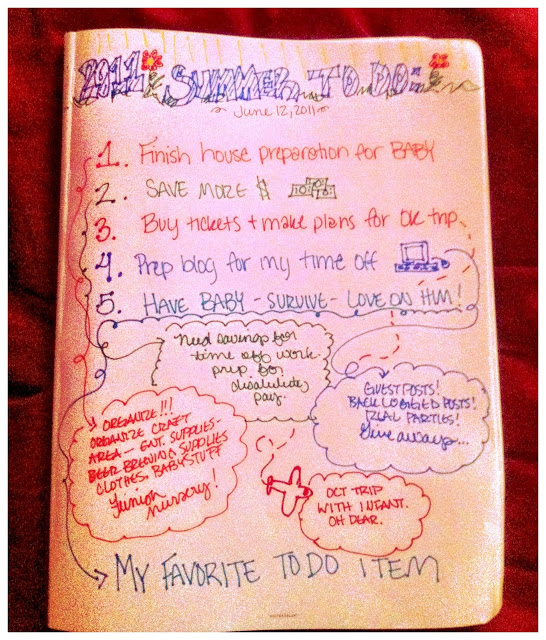 2011 SUMMER TO DO:
June 12, 2011
1. Finish house preparation for BABY
2. SAVE MORE $
3. Buy tickets + make plans for OK trip
4. Prep blog for my time off
5. HAVE BABY - SURVIVE - LOVE ON HIM!
Need savings for
time off work
prep for
disability
pay.
GUEST POSTS!
BACK LOGGED POSTS!
LINK PARTIES!
Give aways...
ORGANIZE!!!
ORGANIZE CRAFT
AREA - ENT. SUPPLIES -
BEER BREWING SUPPLIES
CLOTHES, BABY STUFF
Finish
nursery!
OCT TRIP
WITH INFANT.
OH DEAR.
MY FAVORITE TO DO ITEM